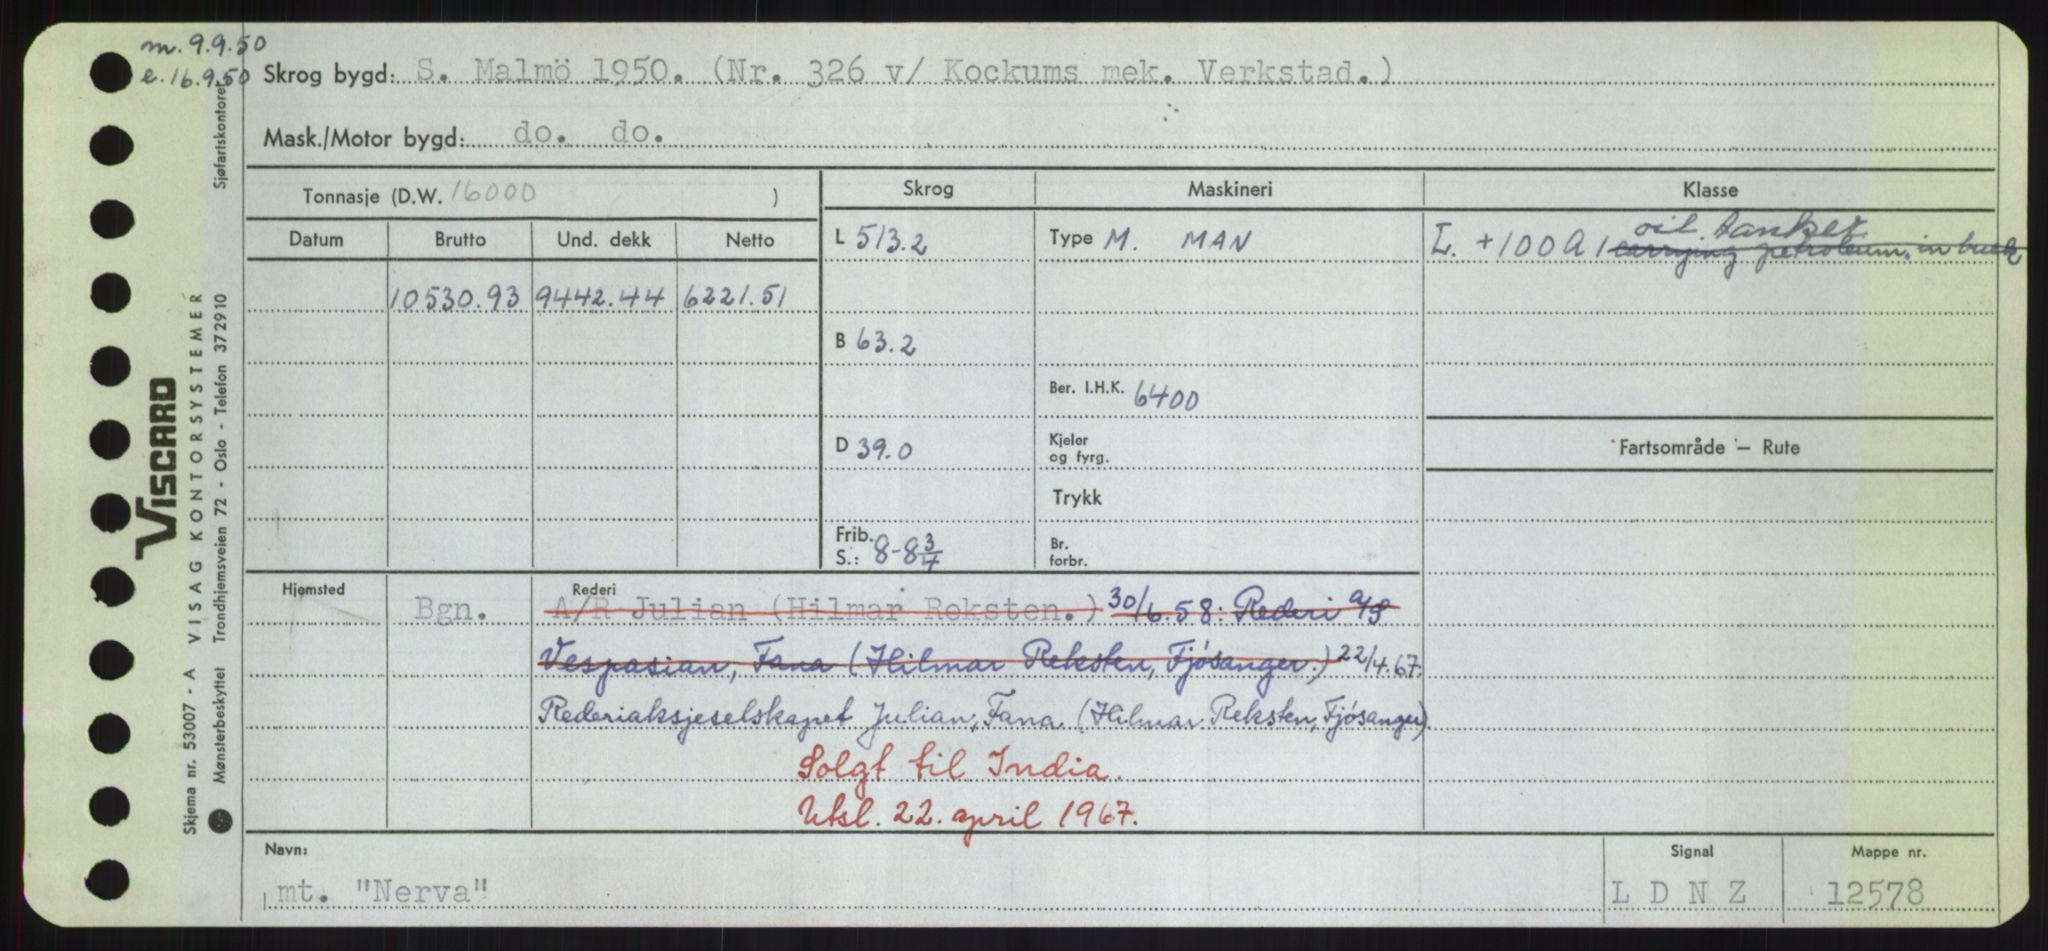 m. 9.9.50
e. 16.9.50
Skrog bygd: S. Malmö 1950. (Nr. 326 v/ Kockums mek. Verkstad.)
Mask./Motor bygd: do. do.
Tonnasje (D.W. 16000 )
Skrog
Maskineri
Klasse
Datum
Brutto
Und. dekk
Netto
L 513.2
Type M. MAN
oil tanker
L. +100A1 carrying petroleum in bulk
10530.93
9442.44
6221.51
B 63.2
Ber. I.H.K. 6400
D 39.0
Kjeler
og fyrg.
Fartsområde – Rute
Trykk
Frib.
S.: 8-8 3/4
Br.
forbr.
Hjemsted
Rederi
Bgn.
A/R Julian (Hilmar Reksten.) 30/6.58: Rederi a/s
Vespasian, Fana (Hilmar Reksten, Fjøsanger.) 22/4.67.
Rederiaksjeselskapet Julian, Fana (Hilmar Reksten, Fjøsanger).
Solgt til India.
Utsl. 22. april 1967.
Navn:
mt. "Nerva"
Signal
L D N Z
Mappe nr.
12578
VISCARD
Skjema nr. 53007 - A VISAG KONTORSYSTEMER
Mønsterbeskyttet Trondhjemsveien 72 - Oslo - Telefon 372910 Sjøfartskontoret